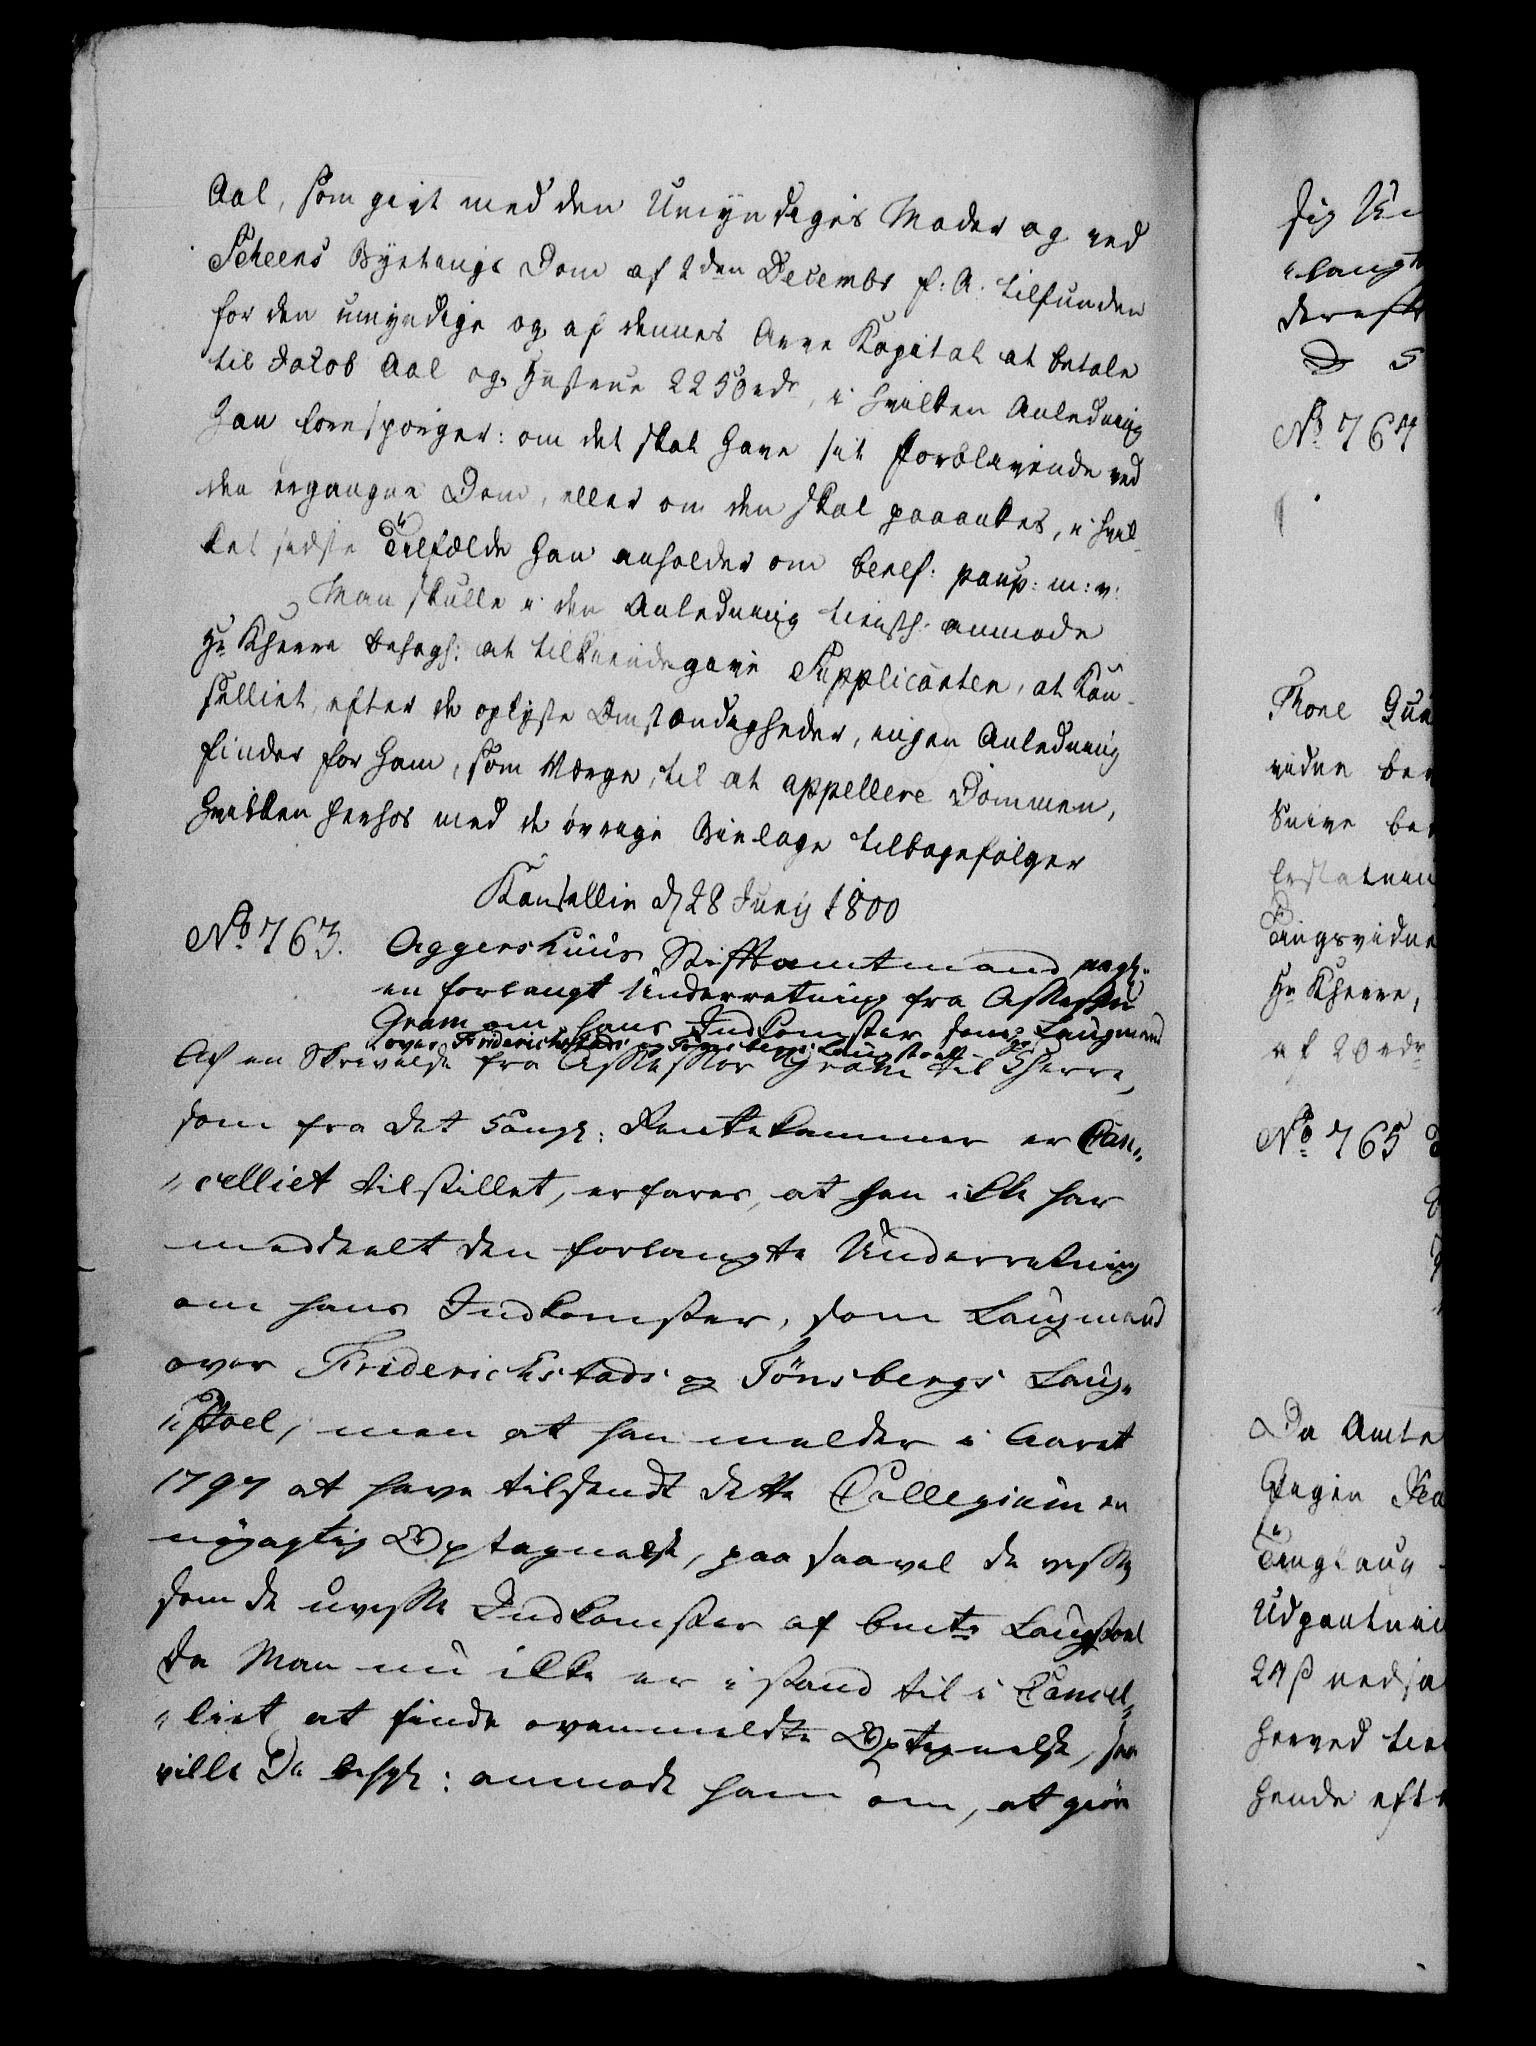 Aal, som gift med den Umyndiges Moder og ved
Scheens Byetings Dom af 2den Decembr f. A. tilfunden
for den umyndige og af dennes Arve Kapital at betale
til Jakob Aal og Hustrue 2250rdr, i hvilken Anledning
han forespørger: om det skal have sit Forblivende ved
den ergangne Dom, eller om den skal paaankes, i hvil-
ket sidste Tilfælde han anholder om benef: paup: m: v:
Man skulle i den Anledning tienstl. anmode
Hr Kherre behagl: at tilkiendegive Supplicanten, at Kan-
selliet, efter de oplyste Omstændigheder, ingen Anledning
finder for ham, som Værge, til at appellere Dommen,
hvilken herhos med de øvrige Bielage tilbagefølger
Kanselliet d 28 Junij 1800
No 763. Aggershuus Stiftamtmand angl.
en forlangt Underretning fra Assessor
Gram om hans Indkomster som Laugmand
over Friderichstads og Tønsbergs Laugstoel
Af en Skrivelse fra Assessor Gram til Kherre,
som fra det Kongl: Rentekammer er Can„
„celliet tilstillet, erfares, at han ikke har
meddeelt den forlangte Underretning
om hans Indkomster, som Laugmand
over Friderichstads og Tønsbergs Laug„
„stoel, men at han melder i Aaret
1797 at have tilsendt dette Collegium en
nøjagtig Optegnelse, paa saavel de visse
som de uvisse Indkomster af bemte Laugstoel
Da Man nu ikke er istand til i Cancel„
„liet at finde ovenmeldte Optegnelse, saa
ville De behagl: anmode ham om, at giøre
sig Um
„langt
dereft
D S
No 764
Thore Gun
vidne ber
Snive be
Erstatnin
Tingsvidne
Hr Kherre,
af 20rdr
No 765
Da Amtm
Fogin
Tinglaug
Udpantnin
24ß nedsa
herved tien
hende efte